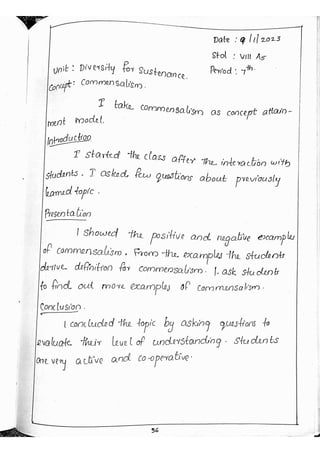 Date : 9/1/2023
Std : VIII A5
Period : 7th.
Unit : Diversity for Sustenance.
Concept : Commensalism.
I take commensalism as concept attain-
ment model.
Introduction
I started the class after the interaction with
students. I asked few questions about previously
learned topic.
Presentation
I showed the positive and negative examples
of commensalism. From the examples the students
derive definition for commensalism. I ask students
to find out more examples of commensalism.
Conclusion.
I concluded the topic by asking questions to
evaluate their level of understanding. Students
are very active and co-operative.
36